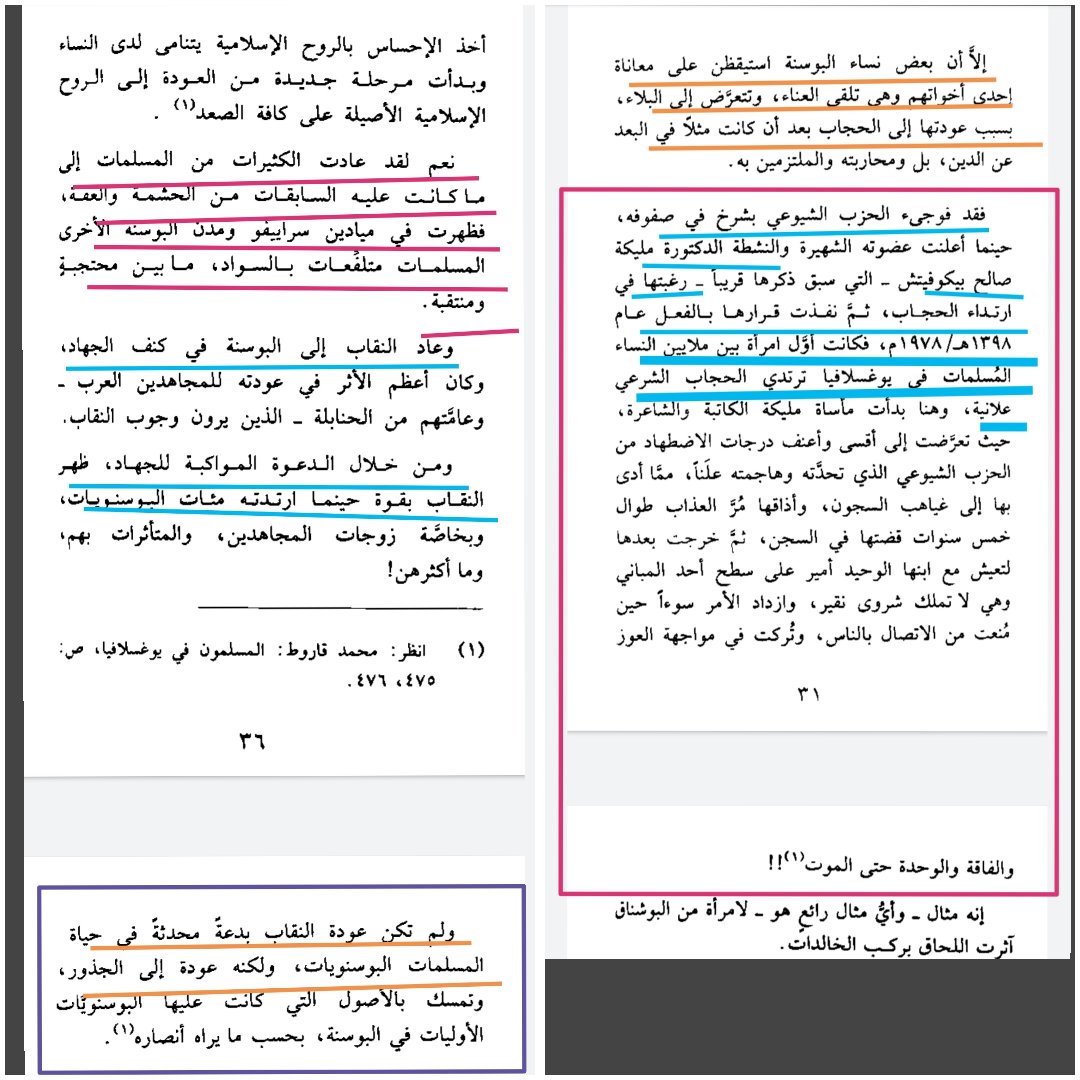 إلاَّ أن بعض نساء البوسنة استيقظن على معاناة
إحدى أخواتهم وهي تلقى العناء، وتتعرَّض إلى البلاء،
بسبب عودتها إلى الحجاب بعد أن كانت مثلاً في البعد
عن الدين، بل ومحاربته والملتزمين به.
فقد فوجىء الحزب الشيوعي بشرخ في صفوفه،
حينما أعلنت عضوته الشهيرة والنشطة الدكتورة مليكة
صالح بيكوفيتش ـ التي سبق ذكرها قريباً ـ رغبتها في
ارتداء الحجاب، ثمَّ نفذت قرارها بالفعل عام
١٣٩٨هـ/١٩٧٨م، فكانت أوَّل امرأة بين ملايين النساء
المُسلمات في يوغسلافيا ترتدي الحجاب الشرعي
علانية، وهنا بدأت مأساة مليكة الكاتبة والشاعرة،
حيث تعرَّضت إلى أقسى وأعنف درجات الاضطهاد من
الحزب الشيوعي الذي تحدَّته وهاجمته علَناً، ممَّا أدى
بها إلى غياهب السجون، وأذاقها مُرَّ العذاب طوال
خمس سنوات قضتها في السجن، ثمَّ خرجت بعدها
لتعيش مع ابنها الوحيد أمير على سطح أحد المباني
وهي لا تملك شروى نقير، وازداد الأمر سوءاً حين
مُنعت من الاتصال بالناس، وتُركت في مواجهة العوز
٣١
والفاقة والوحدة حتى الموت(١)!!
إنه مثال ـ وأيُّ مثال رائعٍ هو ـ لامرأة من البوشناق
آثرت اللحاق بركب الخالدات.
أخذ الإحساس بالروح الإسلامية يتنامى لدى النساء
وبدأت مرحلة جديدة من العودة إلى الروح
الإسلامية الأصيلة على كافة الصعد(١) .
نعم لقد عادت الكثيرات من المسلمات إلى
ما كانت عليه السابقات من الحشمة والعفة،
فظهرت في ميادين سراييفو ومدن البوسنة الأخرى
المسلمات متلفِّعات بالسواد، ما بين محتجبةٍ
ومنتقبة.
وعاد النقاب إلى البوسنة في كنف الجهاد،
وكان أعظم الأثر في عودته للمجاهدين العرب ـ
وعامَّتهم من الحنابلة ـ الذين يرون وجوب النقاب.
ومن خلال الدعوة المواكبة للجهاد، ظهر
النقاب بقوة حينما ارتدته مئات البوسنويات،
وبخاصَّة زوجات المجاهدين، والمتأثرات بهم،
وما أكثرهن!
(١) انظر: محمد قاروط: المسلمون في يوغسلافيا، ص:
٤٧٥، ٤٧٦.
٣٦
ولم تكن عودة النقاب بدعةً محدثةً في حياة
المسلمات البوسنويات، ولكنه عودة إلى الجذور،
وتمسك بالأصول التي كانت عليها البوسنويَّات
الأوليات في البوسنة، بحسب ما يراه أنصاره(١).